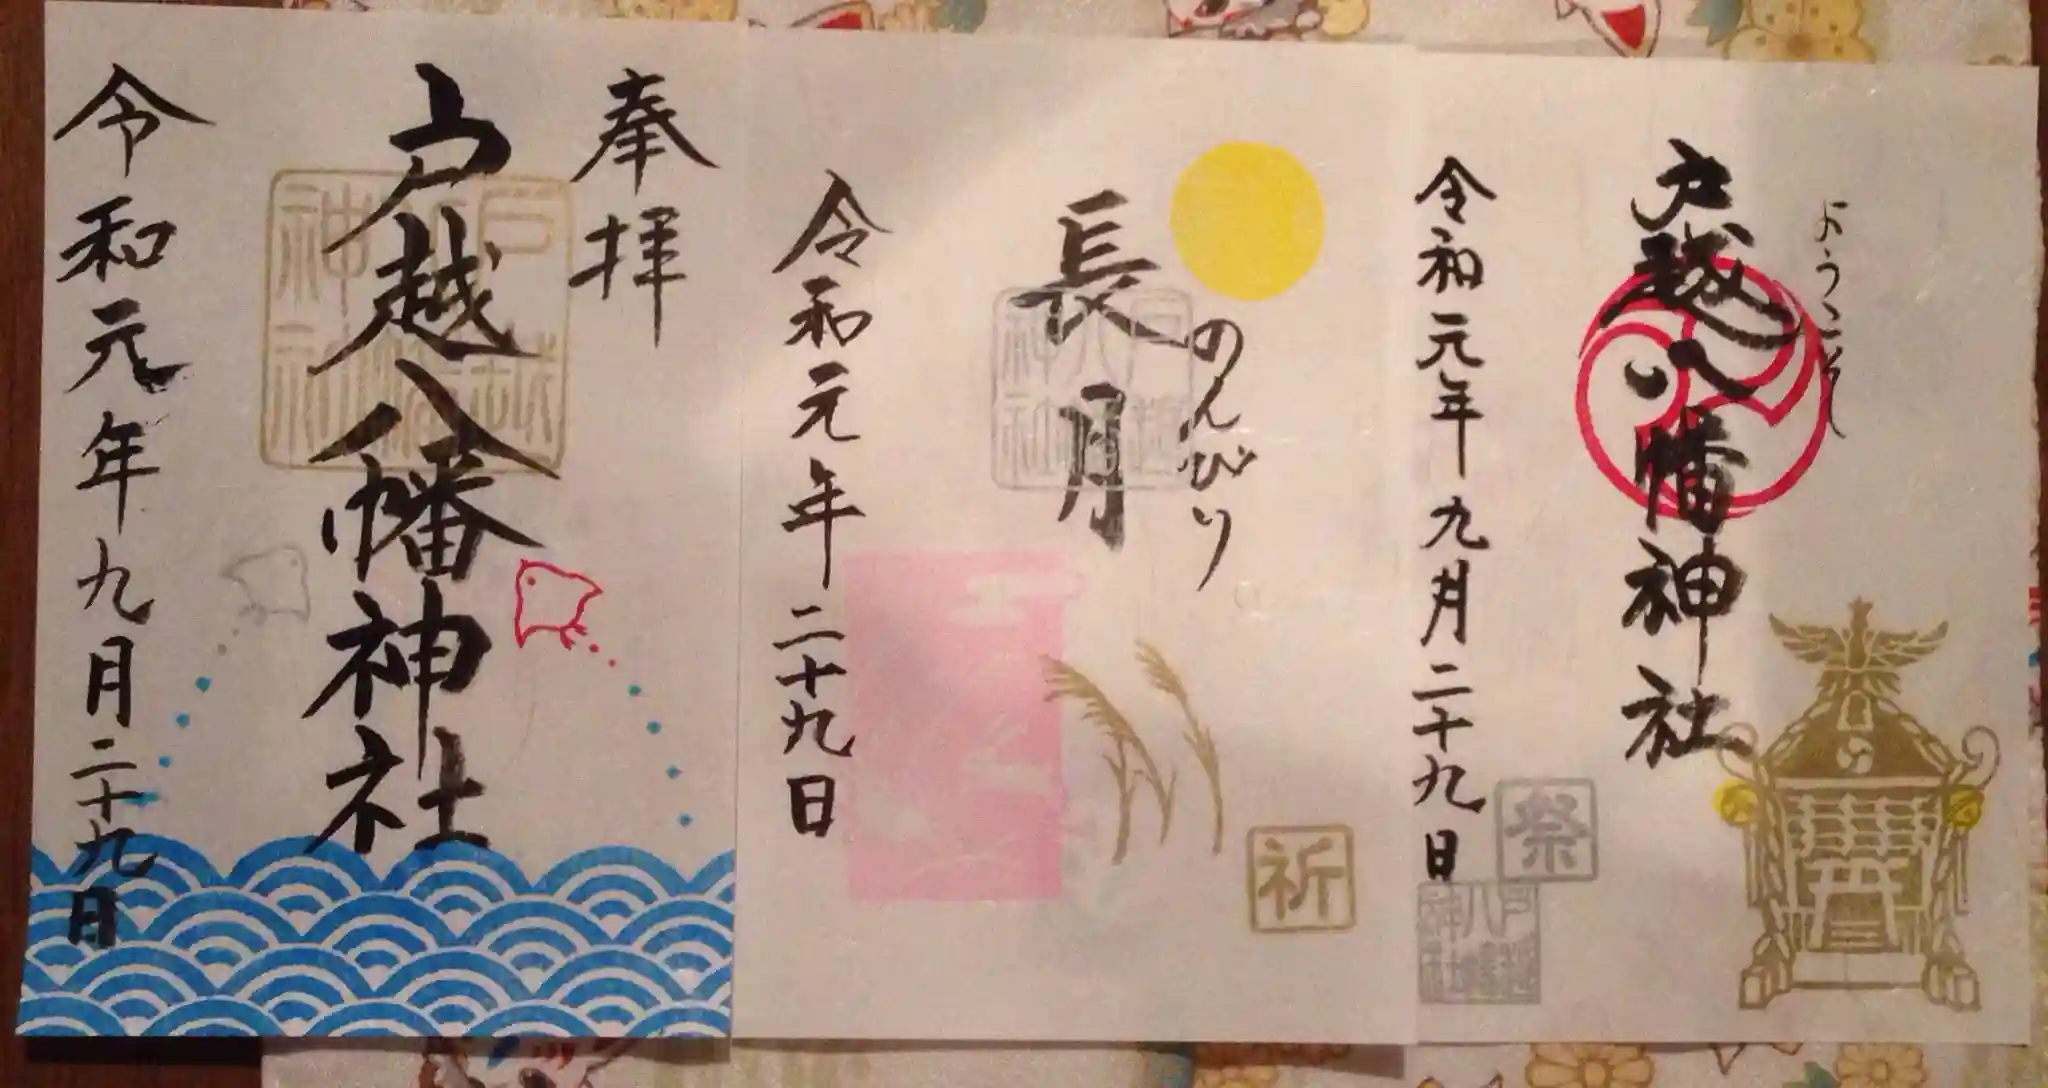 奉拝
戸越八幡神社
令和元年九月二十九日
戸越八幡神社
のんびり
長月
令和元年二十九日
戸越八幡神社
祈
ようこそ
戸越八幡神社
令和元年九月二十九日
祭
戸越八幡神社